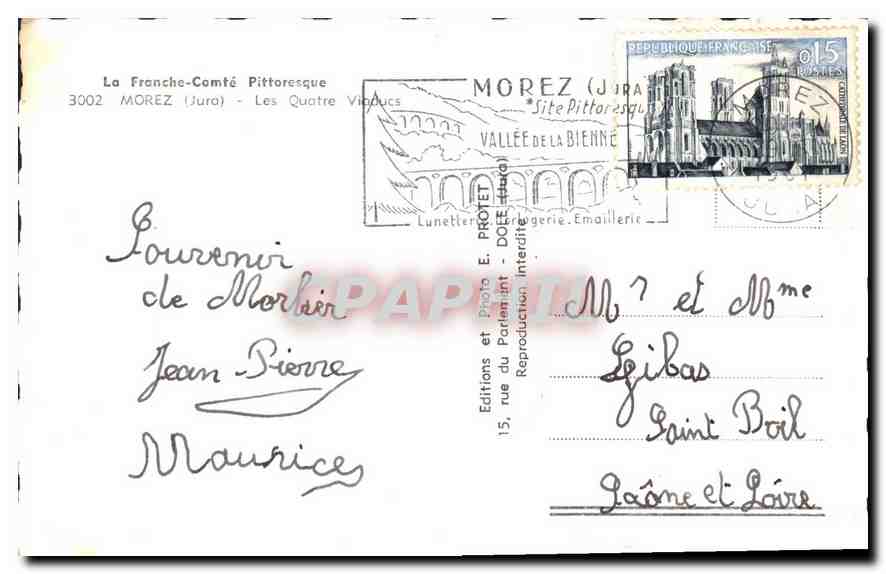 La Franche-Comté Pittoresque
3002 MOREZ (Jura) - Les Quatre Viaducs
MOREZ (JURA
*Site Pittoresqu
VALLÉE DE LA BIENNE
Lunetterie. Horlogerie. Emaillerie
REPUBLIQUE FRANÇAISE
0,15
POSTES
CATHÉDRALE DE LAON
MOREZ
JURA
Souvenir
de Morbier
Jean-Pierre
Maurice
Editions et Photo E. PROTET
15, rue du Parlement - DOLE (Jura)
Reproduction interdite
CPAPHIL
Mr et Mme
Gibas
Saint Boil
Saône et Loire